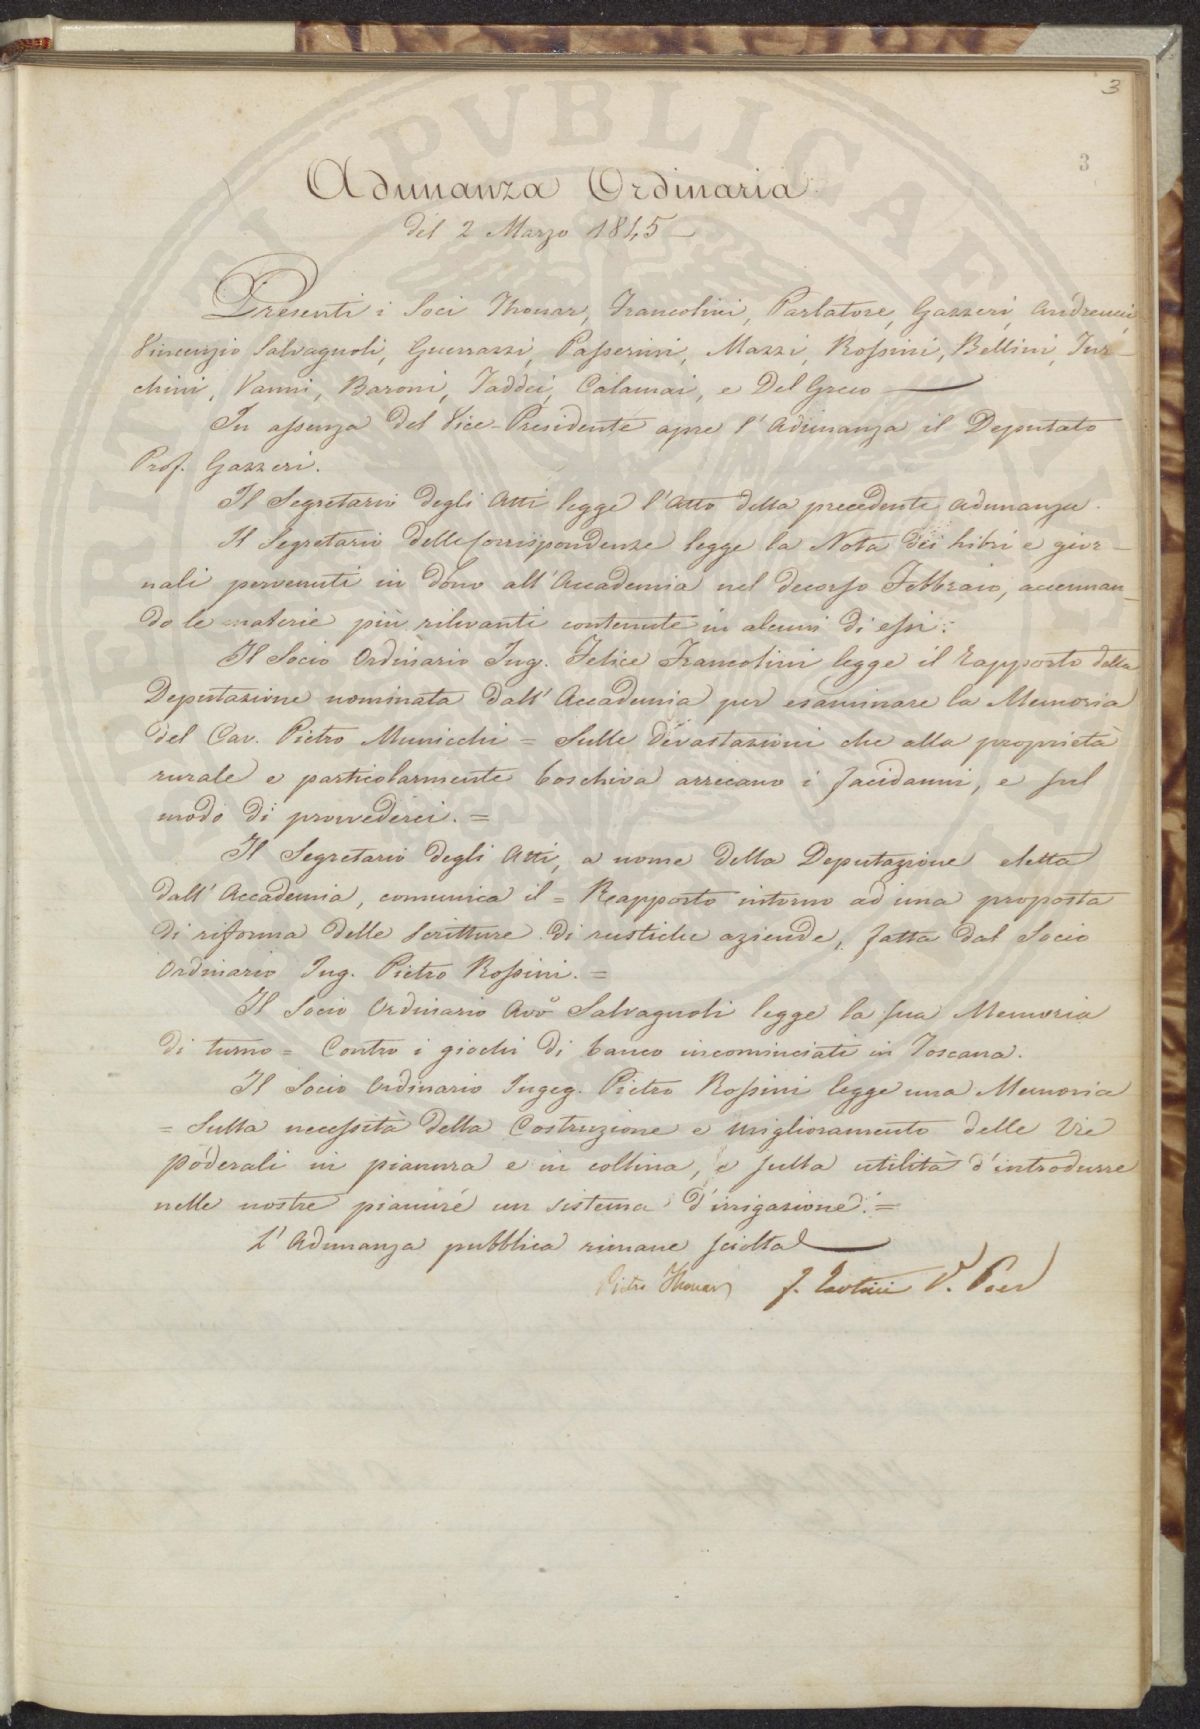 3
3
Adunanza Ordinaria
del 2 Marzo 1845
Presenti i Soci Thouar, Francolini, Parlatore, Gazzeri, Andreucci,
Vincenzio Salvagnoli, Guerrazzi, Passerini, Mazzi, Rossini, Bellini, Tur-
chini, Vanni, Baroni, Taddei, Calamai, e Del Greco
In assenza del Vice-Presidente apre l'Adunanza il Deputato
Prof. Gazzeri.
Il Segretario degli Atti legge l'Atto della precedente adunanza.
Il Segretario delle Corrispondenze legge la Nota dei libri e gior-
nali pervenuti in dono all'Accademia nel decorso Febbraio, accennan-
do le materie più rilevanti contenute in alcuni di essi.
Il Socio Ordinario Ing. Felice Francolini legge il rapporto della
Deputazione nominata dall'Accademia per esaminare la Memoria
del Cav. Pietro Municchi = Sulle devastazioni che alla proprietà
rurale e particolarmente boschiva arrecano i facidanni, e sul
modo di provvederci. =
Il Segretario degli Atti, a nome della Deputazione eletta
dall'Accademia, comunica il = Rapporto intorno ad una proposta
di riforma delle scritture di rustiche aziende, fatta dal Socio
Ordinario Ing. Pietro Rossini. =
Il Socio Ordinario Avv.o Salvagnoli legge la sua Memoria
di turno = Contro i giochi di banco incominciati in Toscana.
Il Socio Ordinario Ingeg. Pietro Rossini legge una Memoria
= Sulla necessità della Costruzione e miglioramento delle Vie
poderali in pianura e in collina, e sulla utilità d'introdurre
nelle nostre pianure un sistema d'irrigazione. =
L'Adunanza pubblica rimane sciolta
Pietro Thouar F. Tartini V. P.